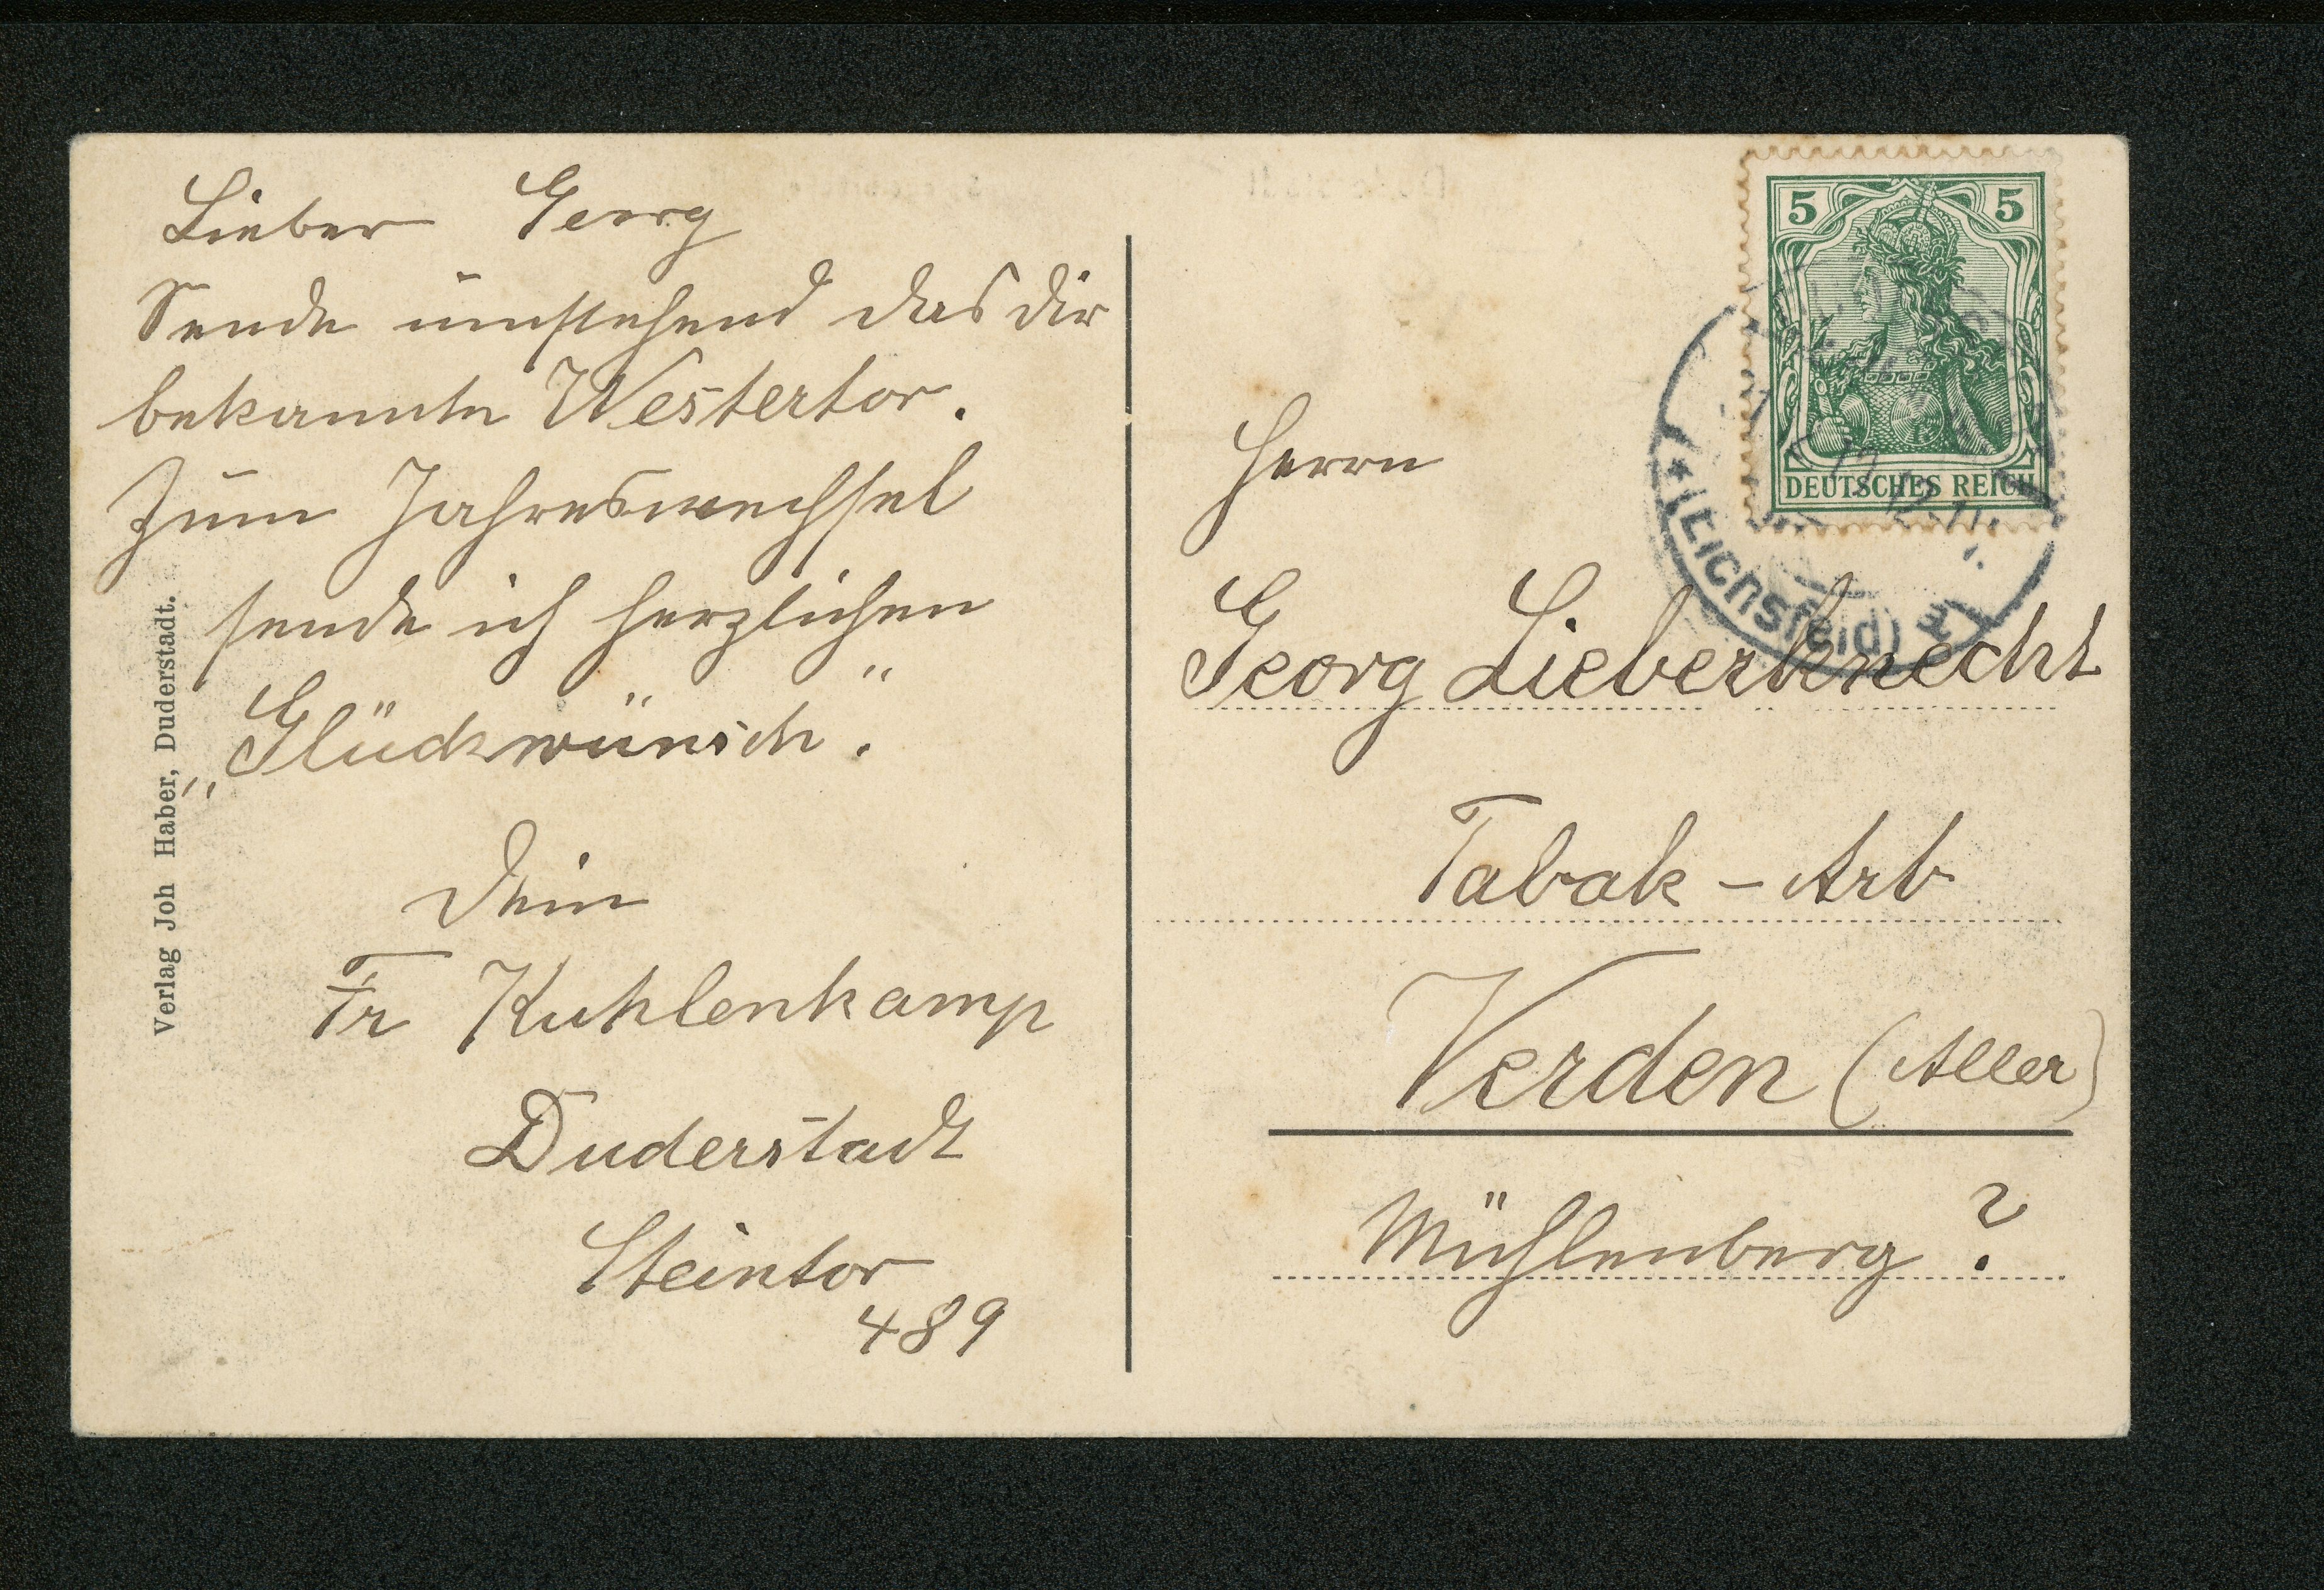 Lieber Georg
Sende umstehend das dir
bekannte Westertor.
Zum Jahreswechsel
sende ich herzlichen
„Glückwünsch".
Dein
Fr Kuhlenkamp
Duderstadt
Steintor
489
Verlag Joh Haber, Duderstadt.
5 5
DEUTSCHES REICH
* (Eichsfeld) a
Herrn
Georg Lieberknecht
Tabak - Arb
Verden (Aller)
Mühlenberg ?